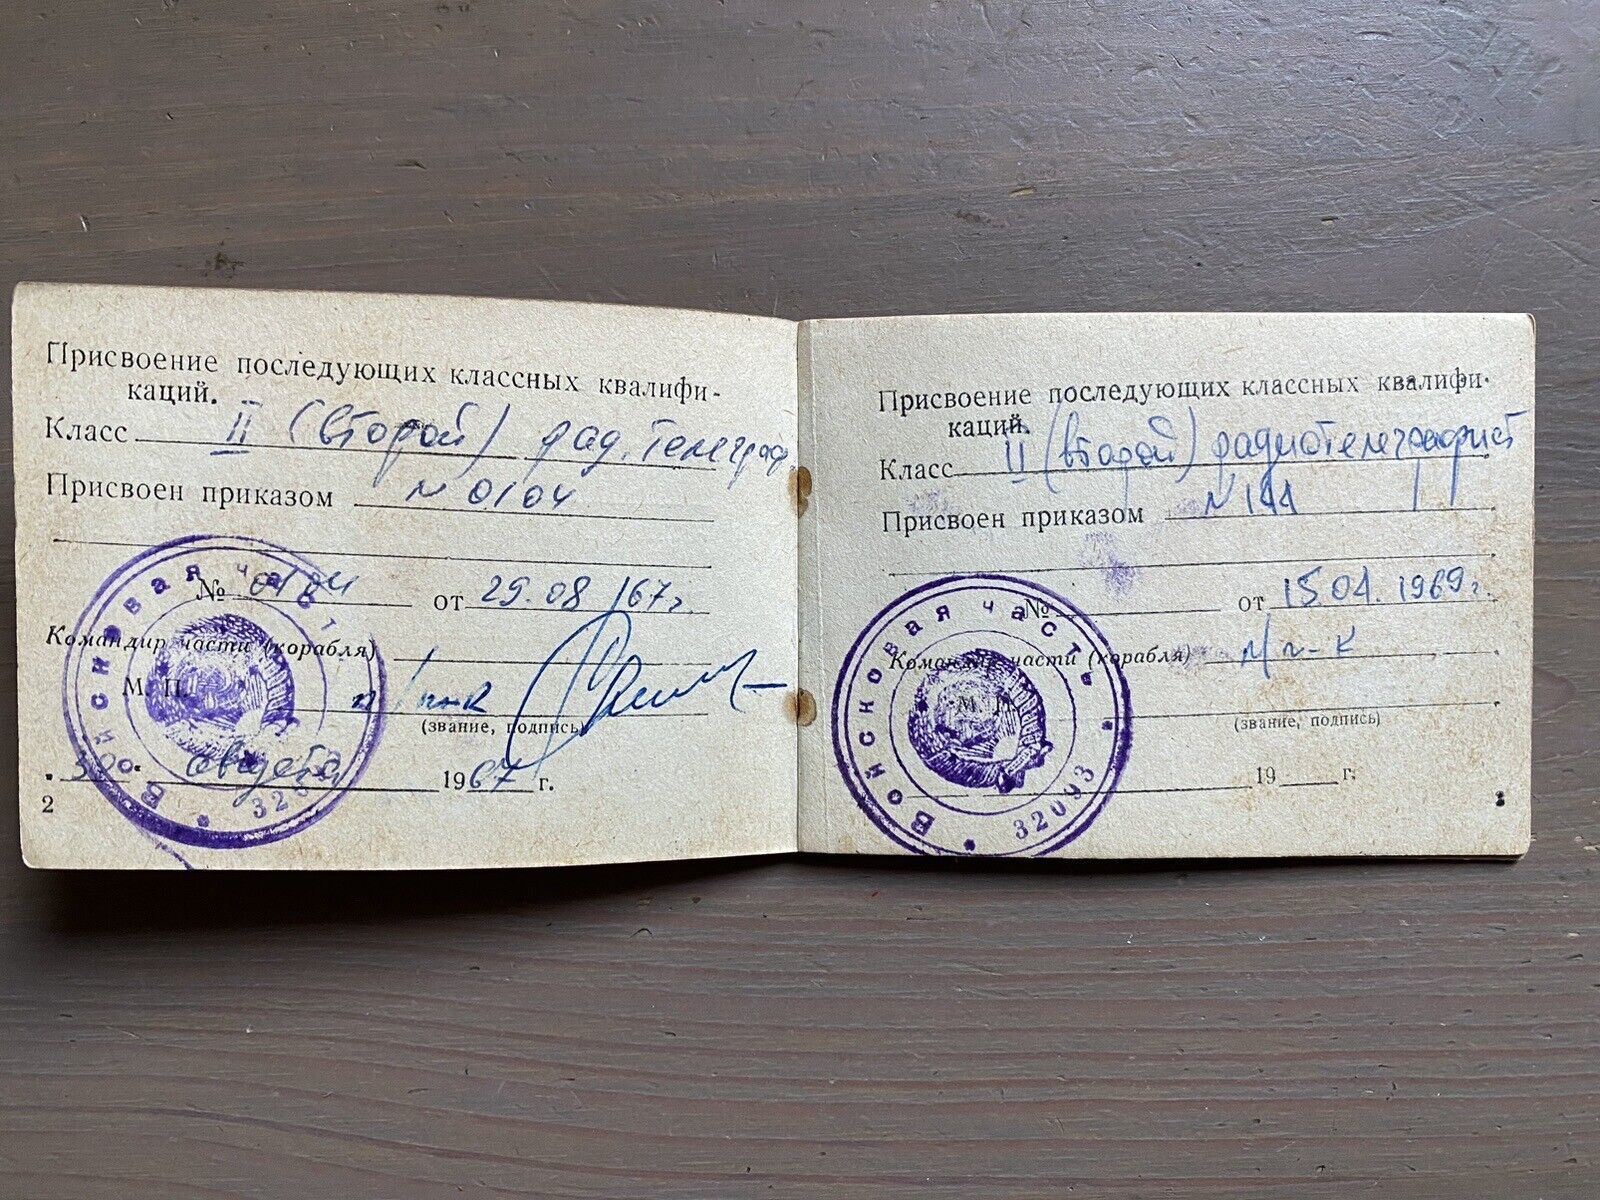 Присвоение последующих классных квалифи-
каций.
Класс II (второй) рад. телеграф
Присвоен приказом № 0104
№ 0104 от 29.08 67г.
Командир части (корабля)
М. П. п/п-к
(звание, подпись)
30 августа 1967 г.
2
Войсковая часть
Присвоение последующих классных квалифи-
каций.
Класс II (второй) радиотелеграфист
Присвоен приказом № 144
№ от 15.04.1969г.
Командир части (корабля) п/п-к
М. П.
(звание, подпись)
19 г.
Войсковая часть
32093